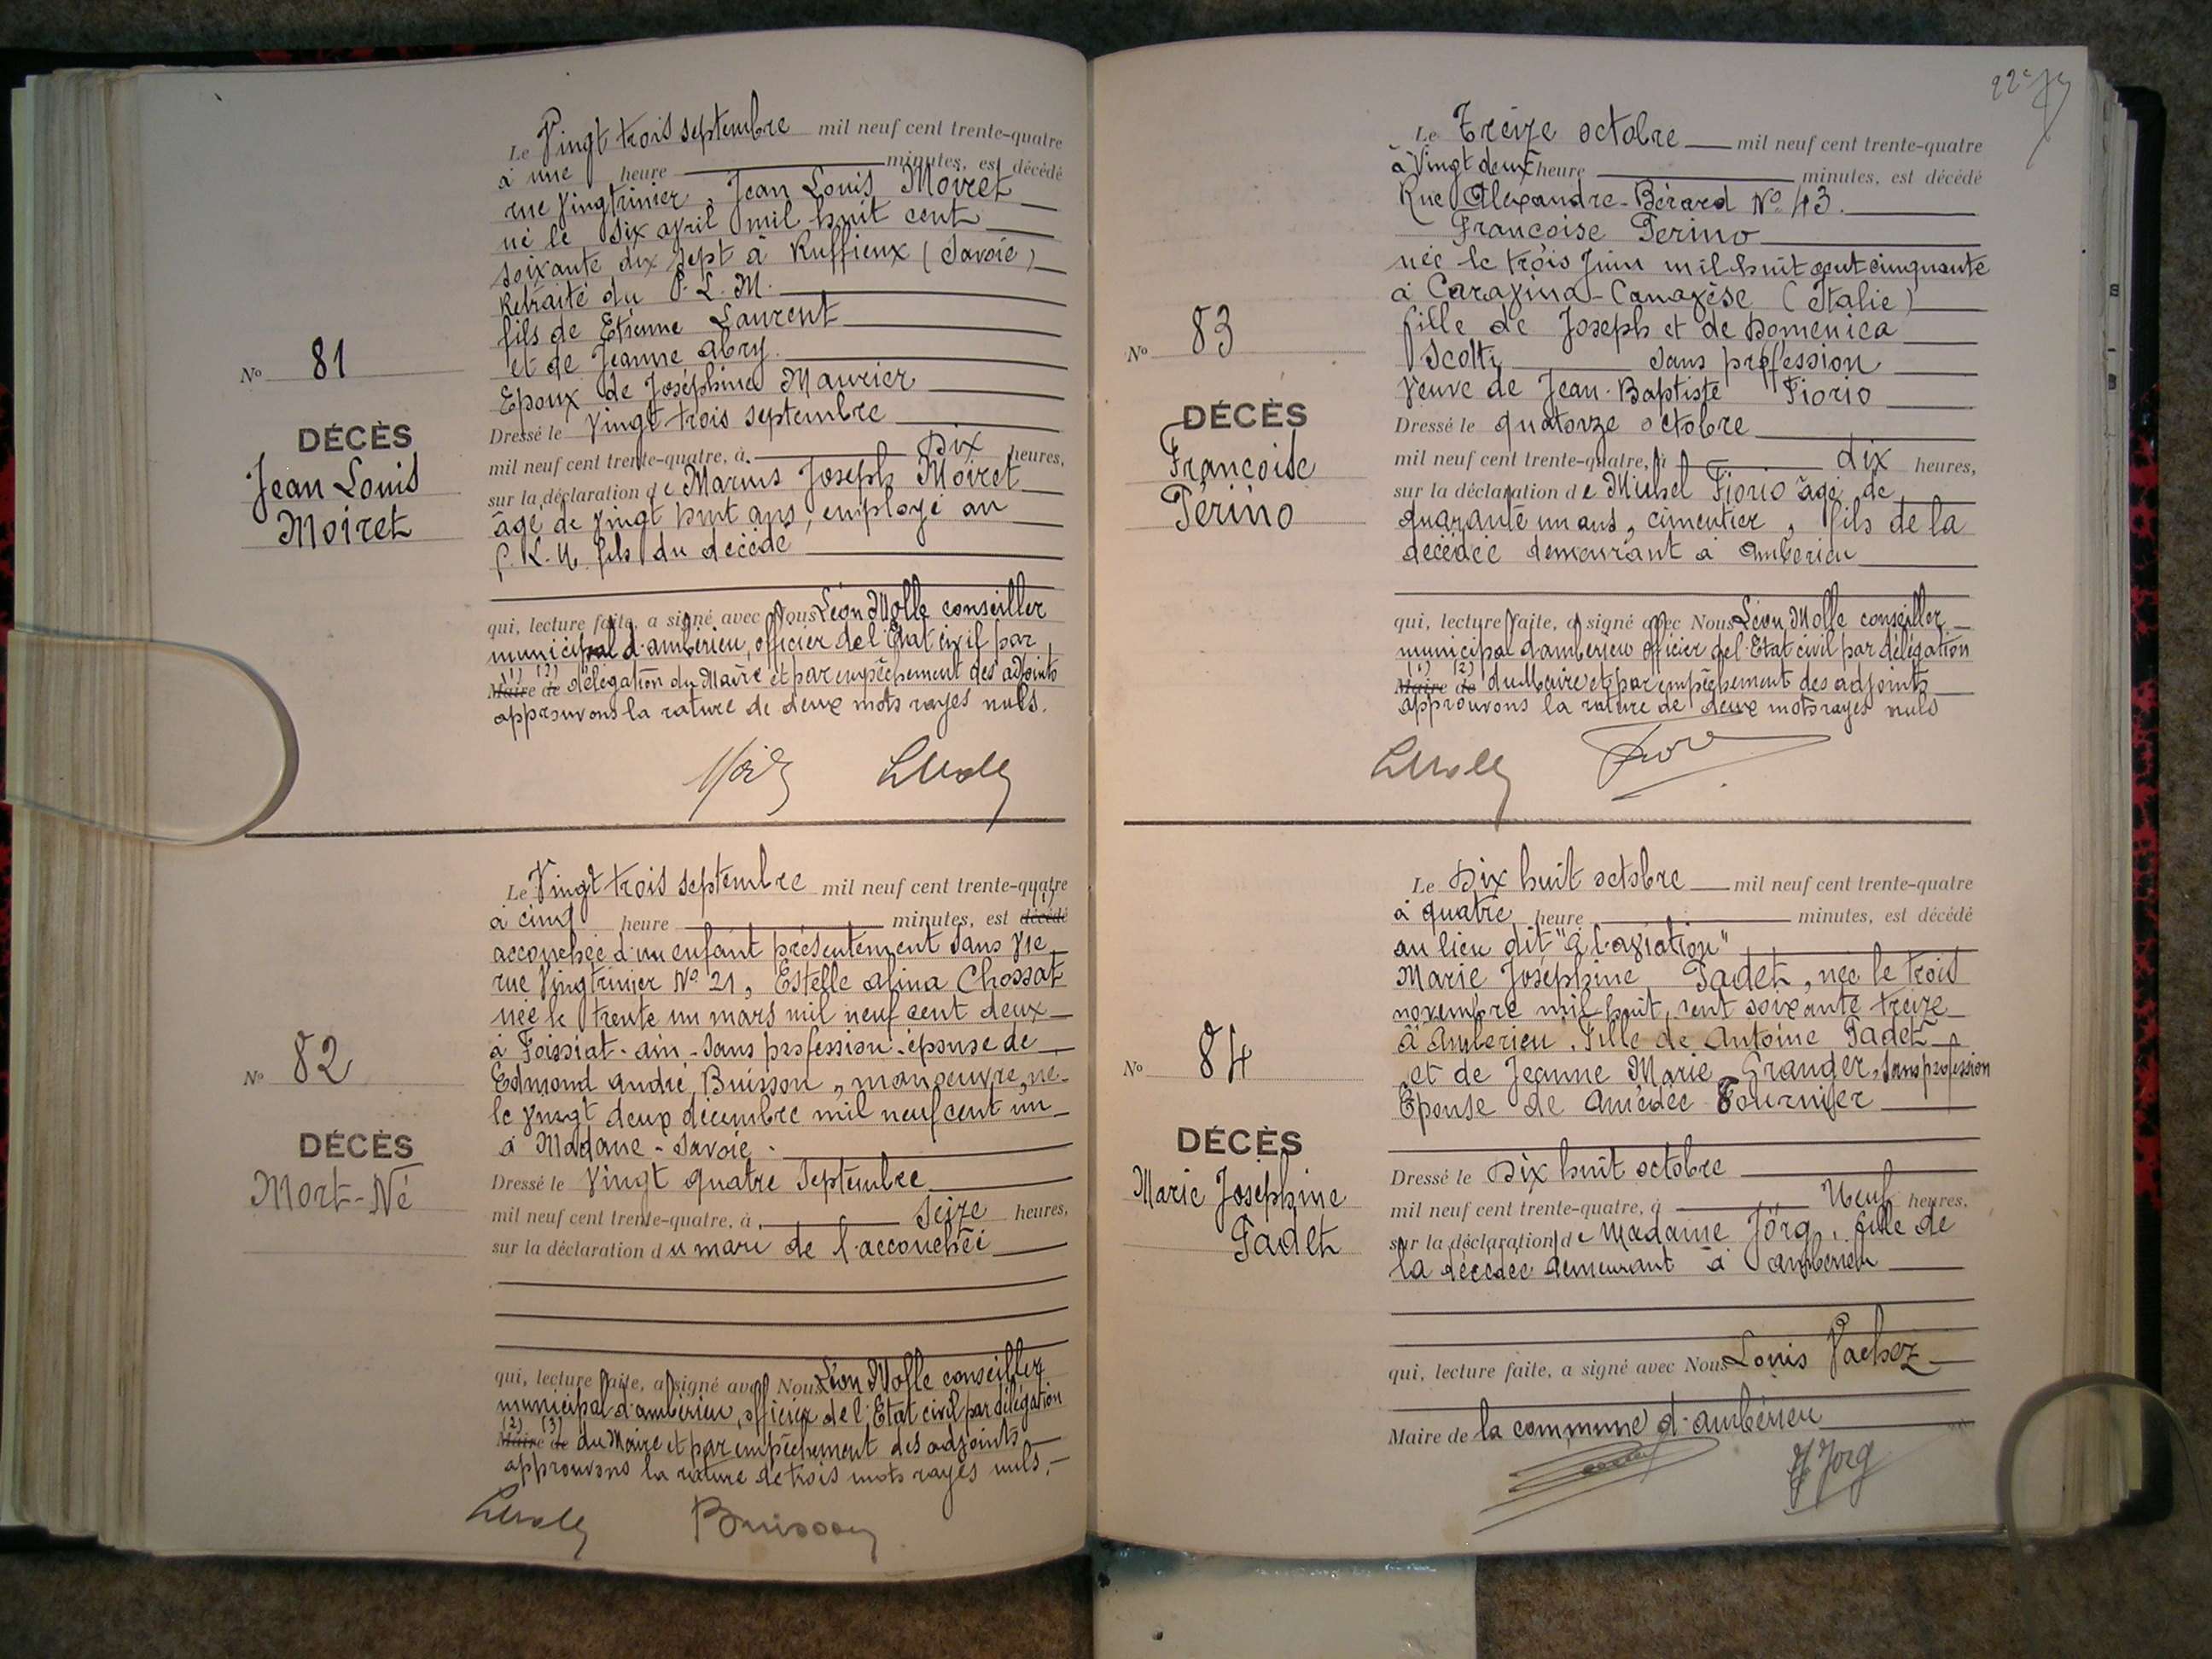 Le Vingt trois septembre mil neuf cent trente-quatre
à une heure minutes, est décédé
rue Vingtrinier, Jean Louis Moiret
né le six avril mil huit cent
soixante dix sept à Ruffieux (Savoie)
Retraité du P. L. M.
fils de Etienne Laurent
et de Jeanne Abry
Epoux de Joséphine Maurier
Dressé le vingt trois septembre
mil neuf cent trente-quatre, à Dix heures,
sur la déclaration de Marius Joseph Moiret
âgé de vingt huit ans, employé au
P. L. M. fils du décédé
qui, lecture faite, a signé avec Nous Léon Molle conseiller
municipal d'ambérieu, officier de l'Etat civil par
(1) (2)
Maire de délégation du Maire et par empêchement des adjoints
approuvons la rature de deux mots rayés nuls.
No 81
DÉCÈS
Jean Louis
Moiret
LMolle
Le Vingt trois septembre mil neuf cent trente-quatre
(1)
à cinq heure minutes, est décédé
accouchée d'un enfant présentement sans vie
rue Vingtrinier No 21, Estelle alina Chossat
née le trente un mars mil neuf cent deux
à Foissiat - ain - sans profession - épouse de
Edmond andré Buisson, manoeuvre, né
le vingt deux décembre mil neuf cent un
à Modane - Savoie -
Dressé le vingt quatre Septembre
mil neuf cent trente-quatre, à Seize heures,
sur la déclaration du mari de l'accouchée
qui, lecture faite, a signé avec Nous Léon Molle conseiller
municipal d'ambérieu, officier de l'Etat civil par délégation
(2) (3)
Maire de du Maire et par empêchement des adjoints
approuvons la rature de trois mots rayés nuls.
No 82
DÉCÈS
Mort-Né
LMolle Buisson
Le Treize octobre mil neuf cent trente-quatre
à Vingt deux heure minutes, est décédé
Rue Alexandre-Bérard No 43.
Francoise Perino
née le trois Juin mil huit cent cinquante
à Caravina-Canavèse (Italie)
fille de Joseph et de Domenica
Scotti sans profession
Veuve de Jean-Baptiste Fiorio
Dressé le quatorze octobre
mil neuf cent trente-quatre, à dix heures,
sur la déclaration de Michel Fiorio âgé de
quarante un ans, cimentier, fils de la
décédée demeurant à ambérieu
qui, lecture faite, a signé avec Nous Léon Molle conseiller
municipal d'ambérieu officier de l'Etat civil par délégation
(1) (2)
Maire de du Maire et par empêchement des adjoints
approuvons la rature de deux mots rayés nuls
No 83
DÉCÈS
Francoise
Périno
LMolle
Le Dix huit octobre mil neuf cent trente-quatre
à quatre heure minutes, est décédé
au lieu dit "à l'aviation"
Marie Joséphine Tadet, née le trois
novembre mil huit cent soixante treize
à ambérieu. Fille de Antoine Tadet
et de Jeanne Marie Granger, sans profession
Epouse de Amédée Fournier
Dressé le Dix huit octobre
mil neuf cent trente-quatre, à Neuf heures,
sur la déclaration de Madame Jörg, fille de
la décédée demeurant à ambérieu
qui, lecture faite, a signé avec Nous Louis Pachoz
Maire de la commune d'ambérieu
Jorg
No 84
DÉCÈS
Marie Joséphine
Tadet